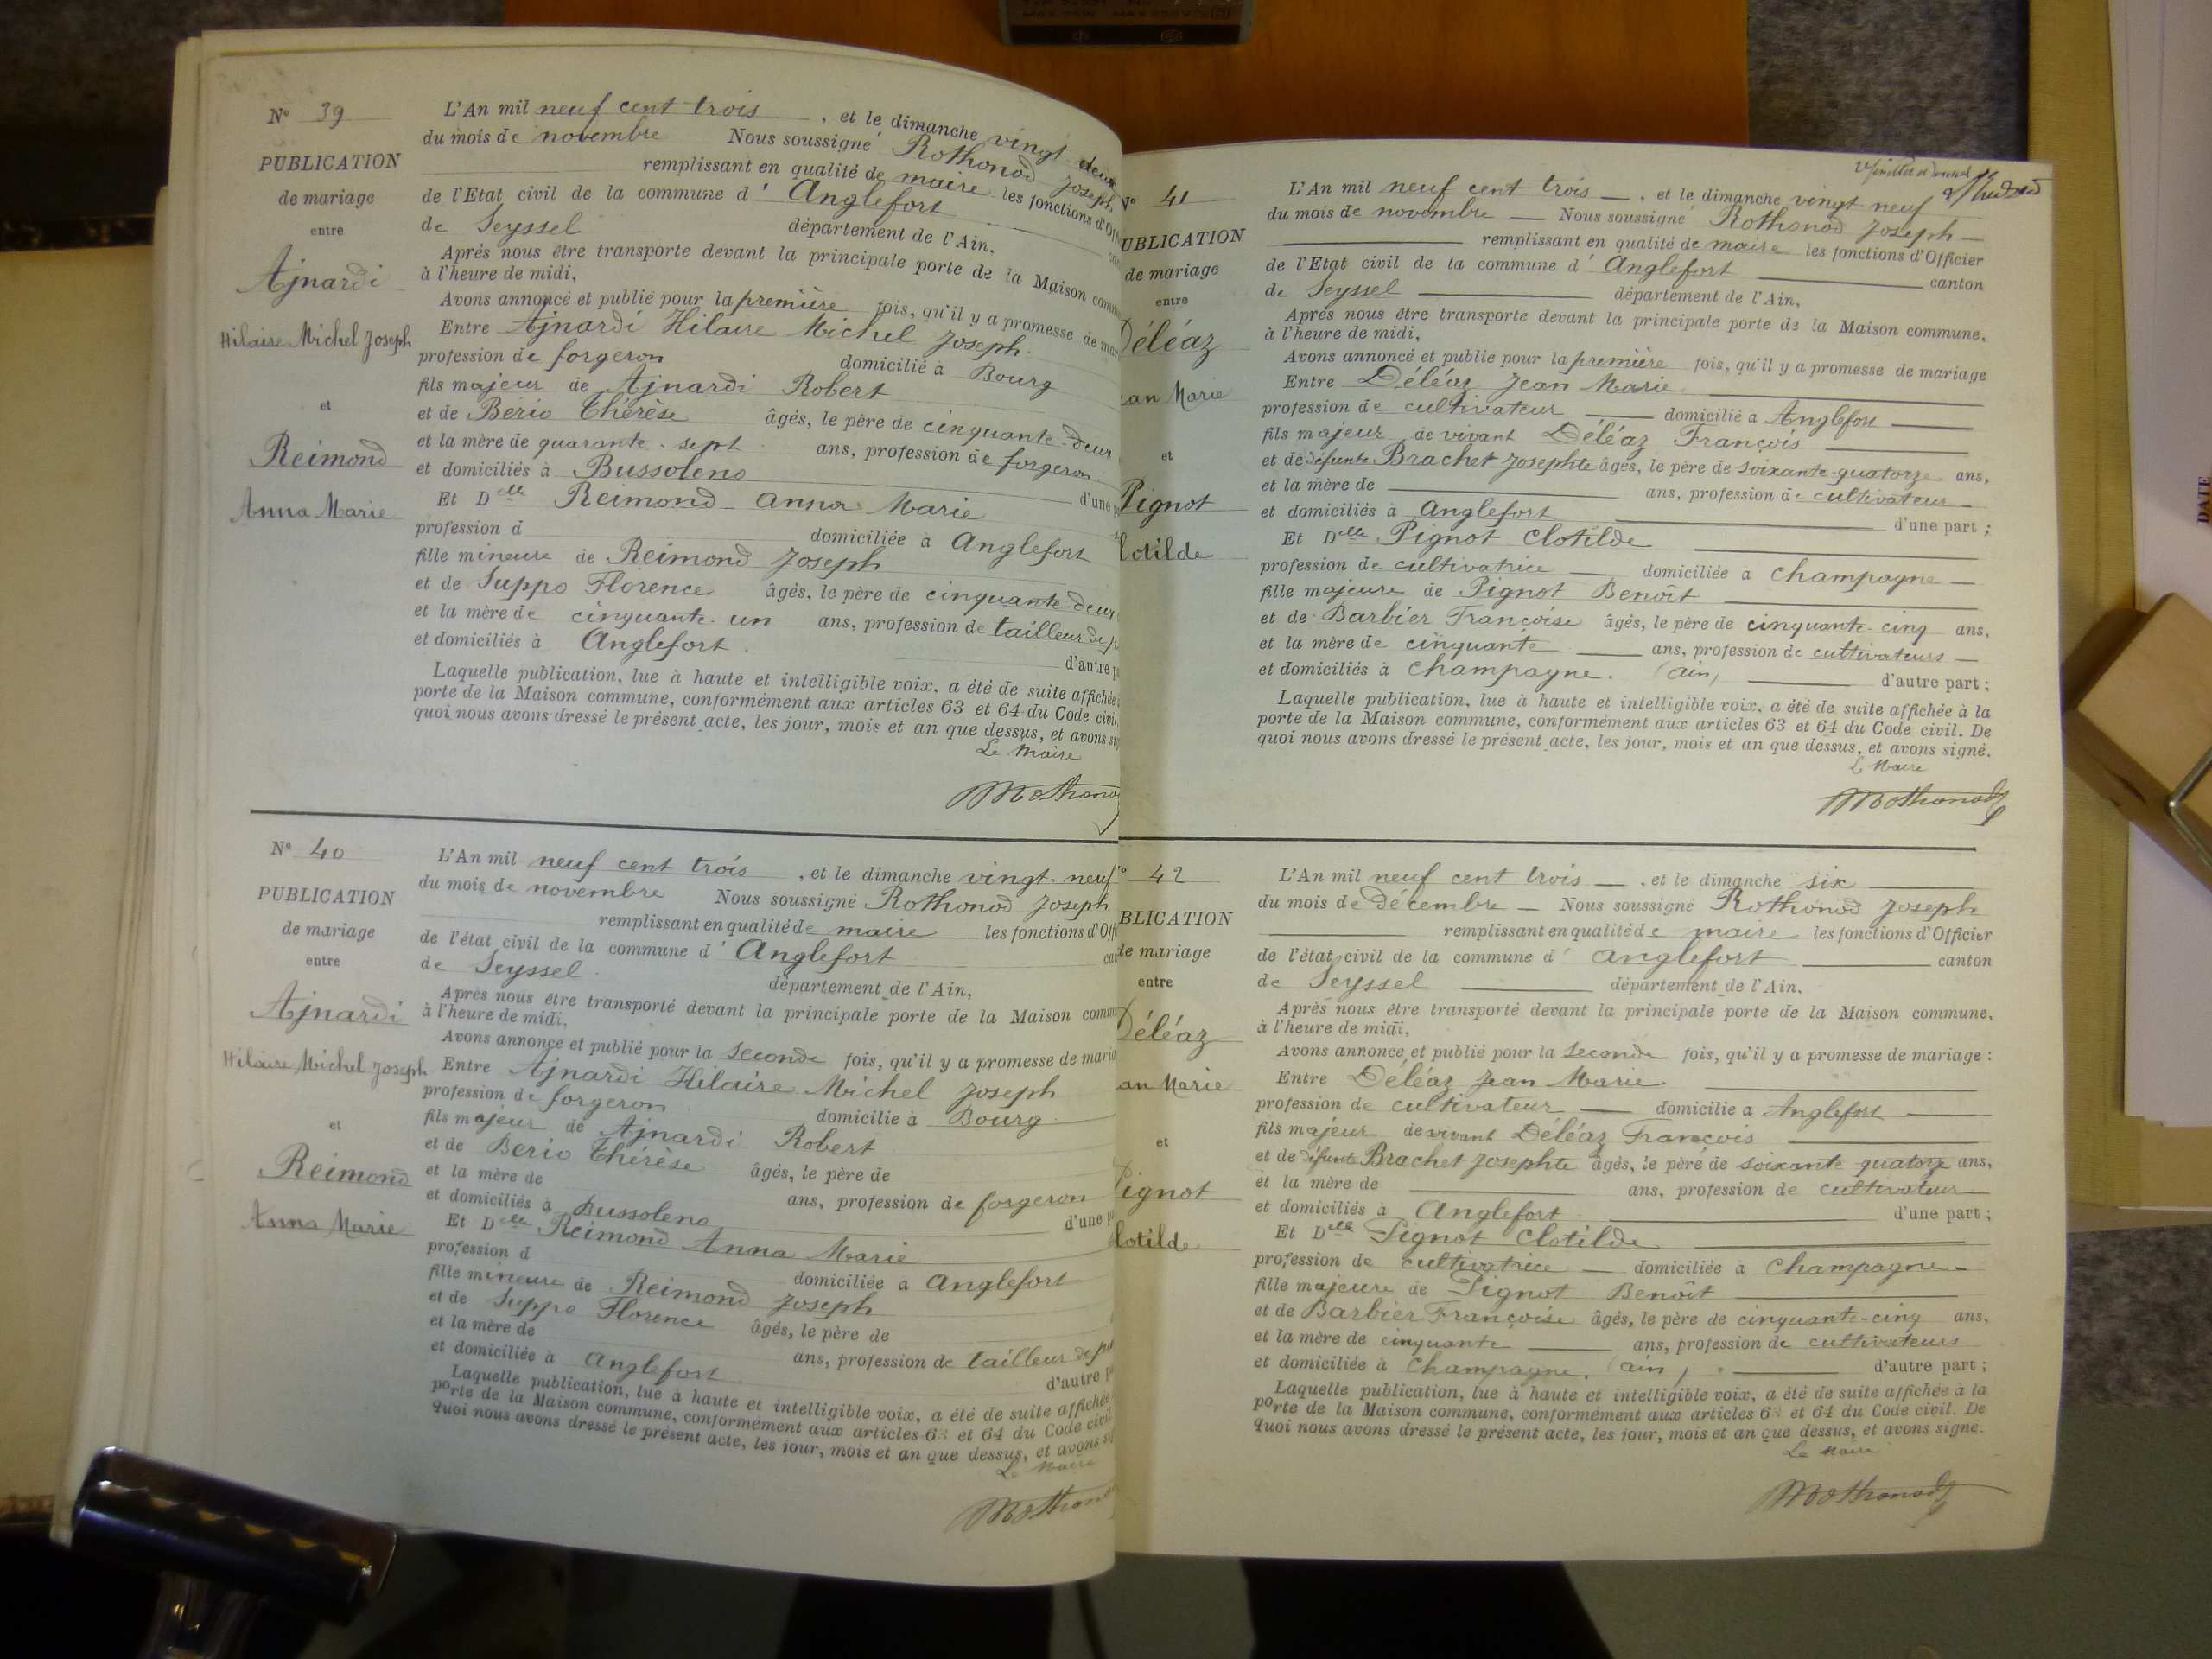 N° 39
PUBLICATION
de mariage
entre
Ajnardi
Hilaire Michel Joseph
et
Reimond
Anna Marie
L'An mil neuf cent trois, et le dimanche vingt-deux
du mois de novembre Nous soussigné Rothonod Joseph
remplissant en qualité de maire les fonctions d'Off
de l'Etat civil de la commune d' Anglefort
de Seyssel département de l'Ain,
Après nous être transporte devant la principale porte de la Maison comm
à l'heure de midi,
Avons annoncé et publié pour la première fois, qu'il y a promesse de mar
Entre Ajnardi Hilaire Michel Joseph
profession de forgeron domicilié à Bourg
fils majeur de Ajnardi Robert
et de Berio Thérèse âgés, le père de cinquante-deux
et la mère de quarante-sept ans, profession de forgeron
et domiciliés à Bussoleno d'une
Et Delle Reimond Anna Marie
profession d domiciliée à Anglefort
fille mineure de Reimond Joseph
et de Suppo Florence âgés, le père de cinquante-deux
et la mère de cinquante-un ans, profession de tailleur de p
et domiciliés à Anglefort.
d'autre p
Laquelle publication, lue à haute et intelligible voix, a été de suite affichée
porte de la Maison commune, conformément aux articles 63 et 64 du Code civil.
quoi nous avons dressé le présent acte, les jour, mois et an que dessus, et avons si
Le Maire
Rothono
N° 40
PUBLICATION
de mariage
entre
Ajnardi
Hilaire Michel Joseph
et
Reimond
Anna Marie
L'An mil neuf cent trois, et le dimanche vingt-neuf
du mois de novembre Nous soussigné Rothonod Joseph
remplissant en qualité de maire les fonctions d'Off
de l'état civil de la commune d' Anglefort ca
de Seyssel département de l'Ain,
Après nous être transporté devant la principale porte de la Maison comm
à l'heure de midi,
Avons annoncé et publié pour la seconde fois, qu'il y a promesse de maria
Entre Ajnardi Hilaire Michel Joseph
profession de forgeron domicilié à Bourg
fils majeur de Ajnardi Robert
et de Berio Thérèse âgés, le père de
et la mère de ans, profession de forgeron
et domiciliés à Bussoleno d'une p
Et Delle Reimond Anna Marie
profession d domiciliée à Anglefort
fille mineure de Reimond Joseph
et de Suppo Florence âgés, le père de
et la mère de ans, profession de tailleur de p
et domiciliée à Anglefort d'autre p
Laquelle publication, lue à haute et intelligible voix, a été de suite affichée
porte de la Maison commune, conformément aux articles 63 et 64 du Code civil
quoi nous avons dressé le présent acte, les jour, mois et an que dessus, et avons si
Le Maire
Rothon
N° 41
UBLICATION
de mariage
entre
Déléaz
an Marie
et
Pignot
lotilde
L'An mil neuf cent trois, et le dimanche vingt-neuf
du mois de novembre Nous soussigné Rothonod Joseph
remplissant en qualité de maire les fonctions d'Officier
de l'Etat civil de la commune d' Anglefort canton
de Seyssel département de l'Ain,
Après nous être transporte devant la principale porte de la Maison commune,
à l'heure de midi,
Avons annoncé et publié pour la première fois, qu'il y a promesse de mariage
Entre Déléaz Jean Marie
profession de cultivateur domicilié à Anglefort
fils majeur de vivant Déléaz François
et de défunte Brachet Josephte âgés, le père de soixante-quatorze ans,
et la mère de ans, profession de cultivateur
et domiciliés à Anglefort d'une part ;
Et Delle Pignot Clotilde
profession de cultivatrice domiciliée à Champagne
fille majeure de Pignot Benoît
et de Barbier Françoise âgés, le père de cinquante-cinq ans,
et la mère de cinquante ans, profession de cultivateurs
et domiciliés à Champagne. (ain) d'autre part ;
Laquelle publication, lue à haute et intelligible voix, a été de suite affichée à la
porte de la Maison commune, conformément aux articles 63 et 64 du Code civil. De
quoi nous avons dressé le présent acte, les jour, mois et an que dessus, et avons signé.
Le Maire
Rothonod
° 42
BLICATION
de mariage
entre
Déléaz
an Marie
et
Pignot
lotilde
L'An mil neuf cent trois, et le dimanche six
du mois de Décembre Nous soussigné Rothonod Joseph
remplissant en qualité de maire les fonctions d'Officier
de l'état civil de la commune d' Anglefort canton
de Seyssel département de l'Ain,
Après nous être transporté devant la principale porte de la Maison commune,
à l'heure de midi,
Avons annoncé et publié pour la seconde fois, qu'il y a promesse de mariage :
Entre Déléaz Jean Marie
profession de cultivateur domicilié à Anglefort
fils majeur de vivant Déléaz François
et de défunte Brachet Josephte âgés, le père de soixante-quatorze ans,
et la mère de ans, profession de cultivateur
et domiciliés à Anglefort d'une part ;
Et Delle Pignot Clotilde
profession de cultivatrice domiciliée à Champagne
fille majeure de Pignot Benoît
et de Barbier Françoise âgés, le père de cinquante-cinq ans,
et la mère de cinquante ans, profession de cultivateurs
et domiciliée à Champagne. (ain) d'autre part ;
Laquelle publication, lue à haute et intelligible voix, a été de suite affichée à la
porte de la Maison commune, conformément aux articles 63 et 64 du Code civil. De
quoi nous avons dressé le présent acte, les jour, mois et an que dessus, et avons signé.
Le Maire
Rothonod
DATE